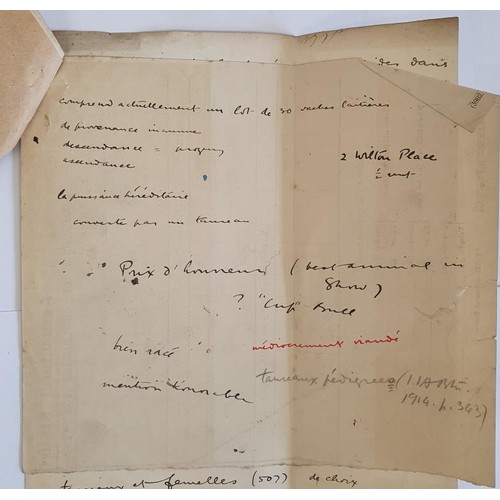 des dans
comprend actuellement un lot de 30 vaches laitières
de provenance inconnue
descendance = progeny
ascendance
2 Wilton Place
la puissance héréditaire
couverte par un taureau
Prix d'honneur (best animal in
Show)
? "Cup" Bull
bien racé
médiocrement viandé
mention honorable
taureaux pédigrees (
1914. p. 343)
taureaux et femelles (507) de choix